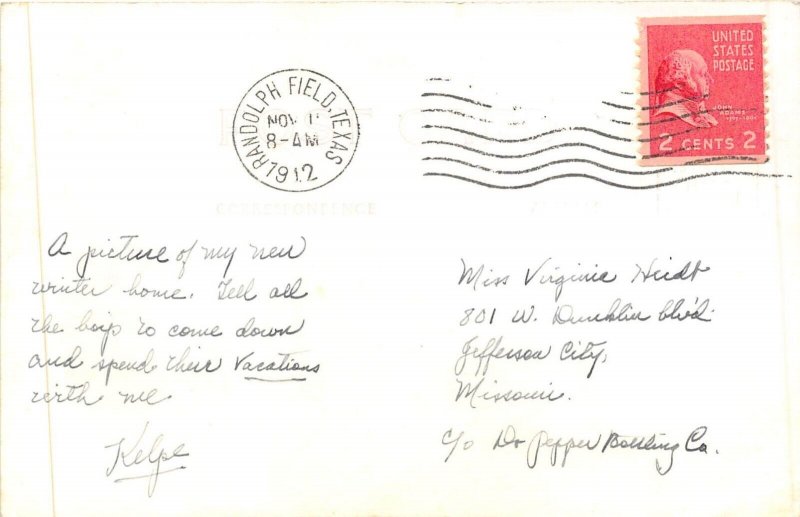 UNITED
STATES
POSTAGE
JOHN
ADAMS
2 CENTS 2
RANDOLPH FIELD, TEXAS
NOV 1
8-AM
1912
CORRESPONDENCE
A picture of my new
winter home. Tell all
the boys to come down
and spend their vacations
with me
Kelpe
Miss Virginia Heidt
801 W. Dunklin blvd.
Jefferson City,
Missouri.
c/o Dr Pepper Bottling Co.